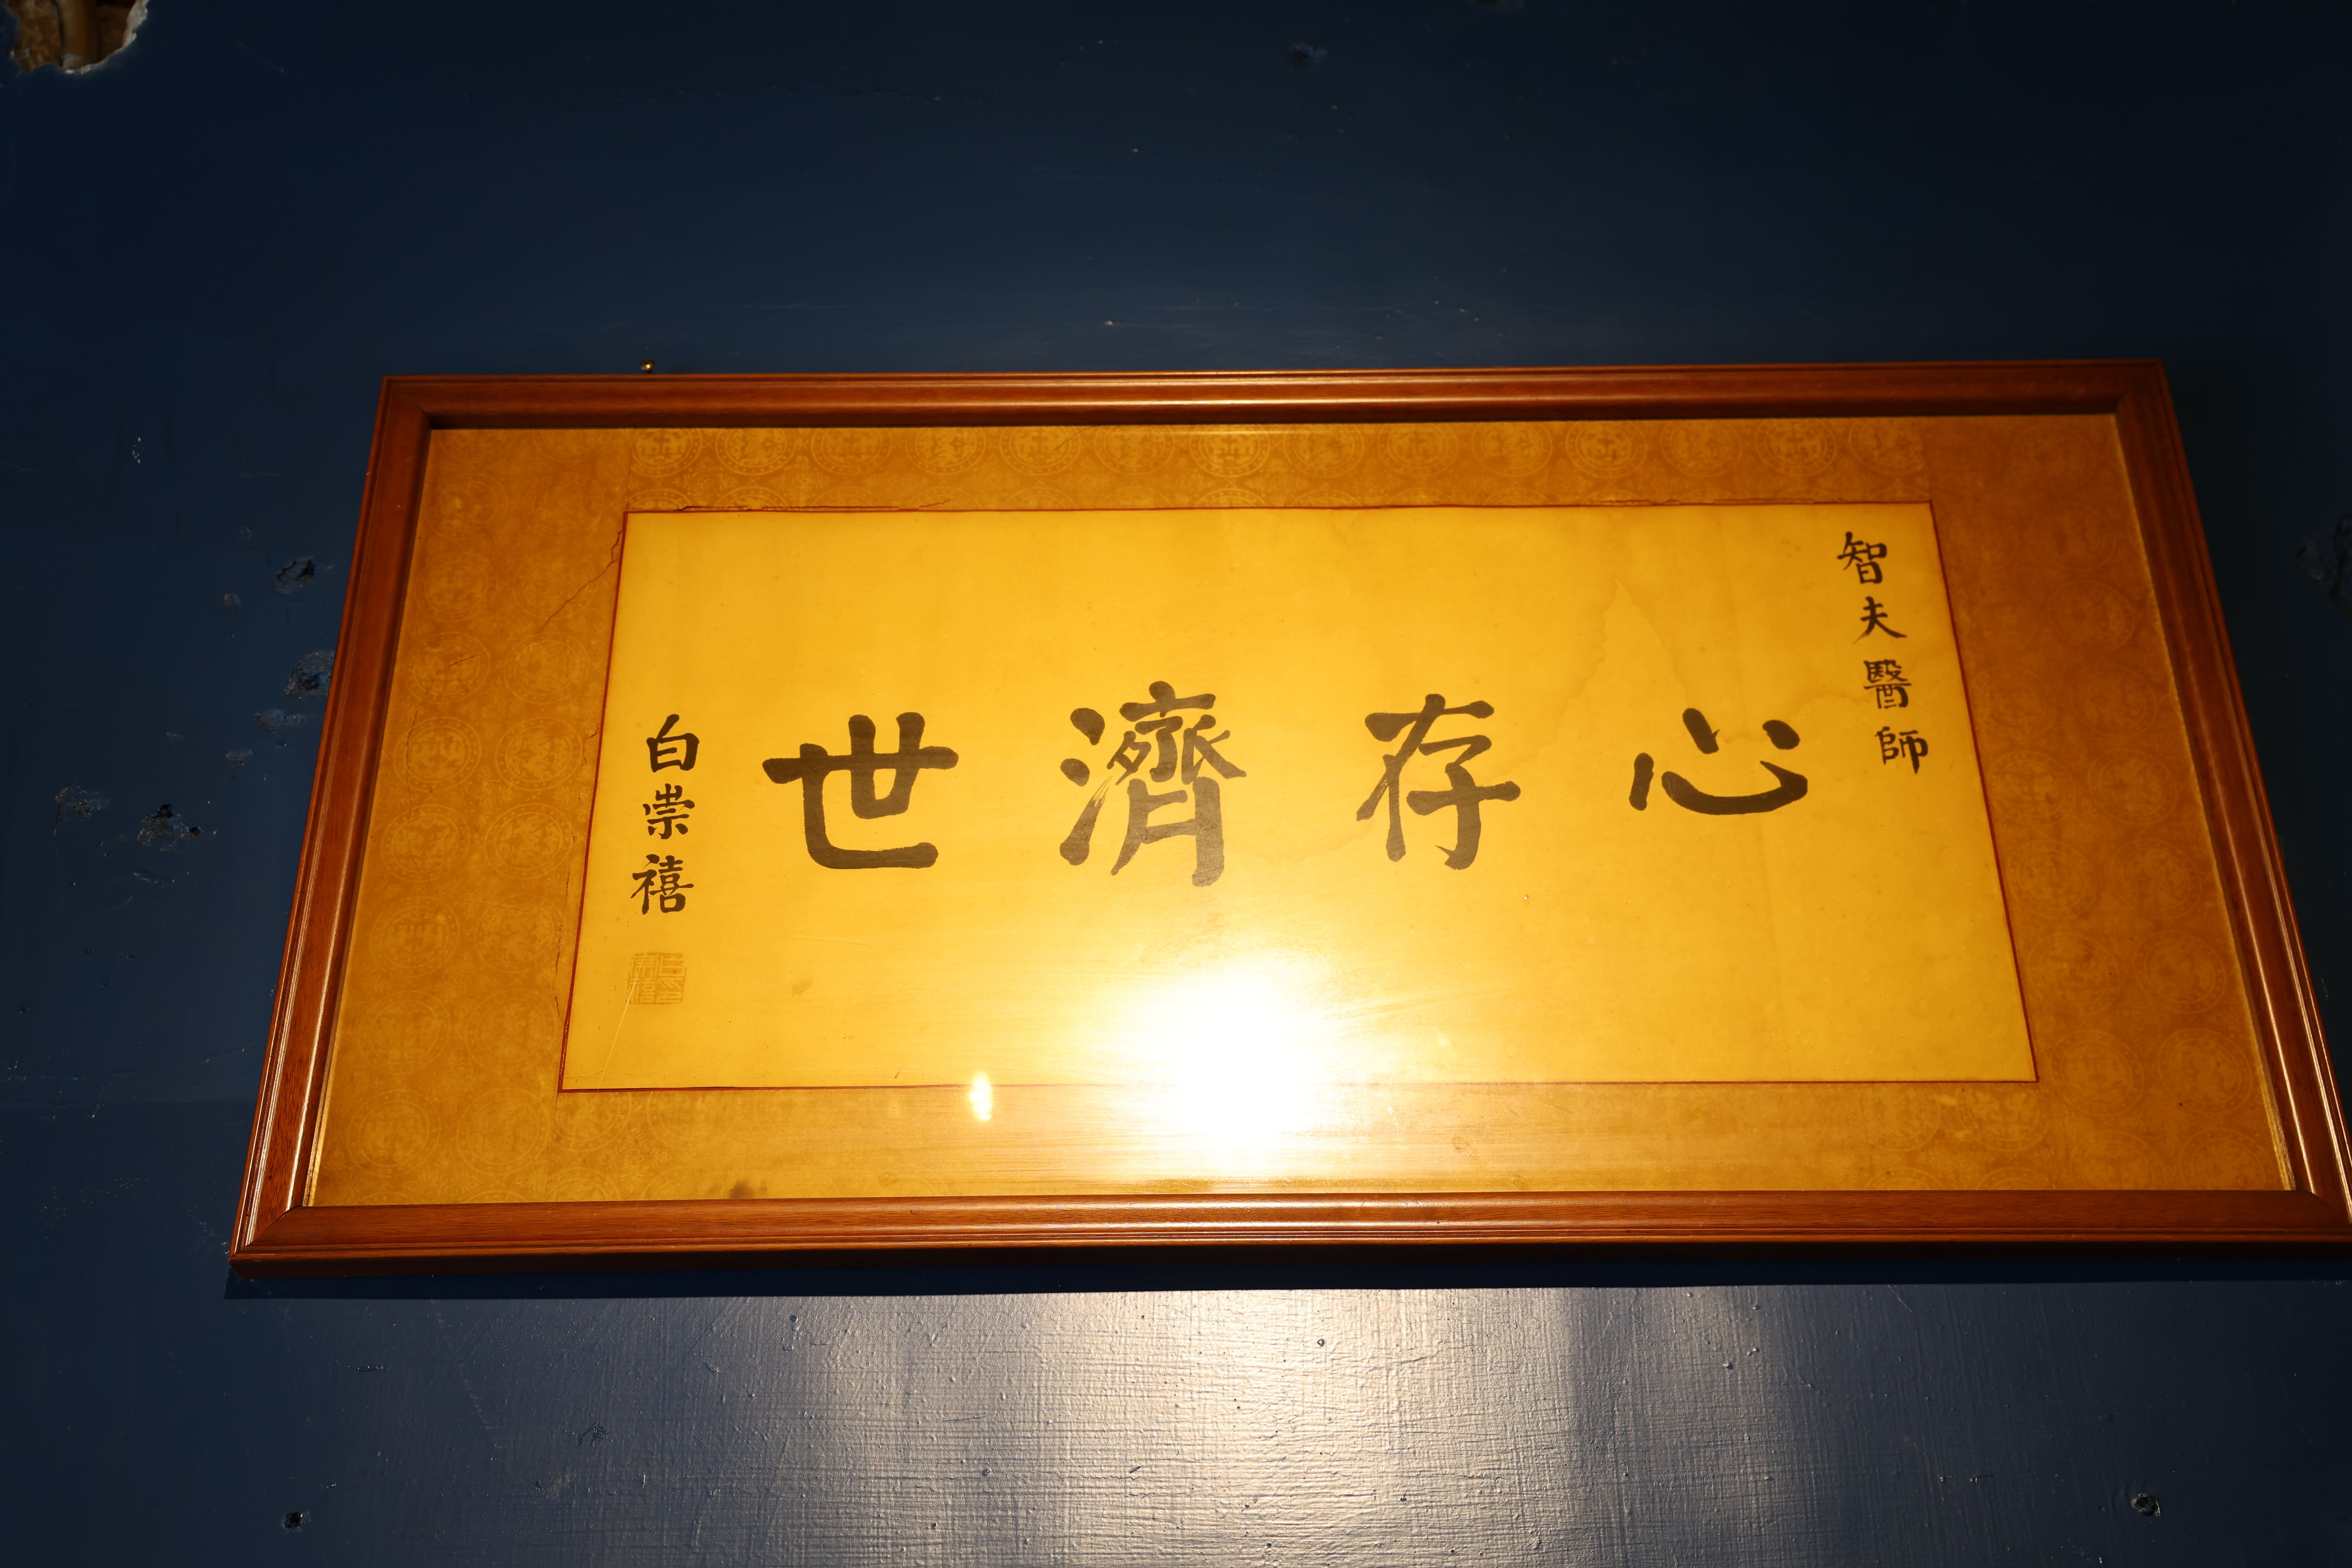 智夫醫師
心存濟世
白崇禧